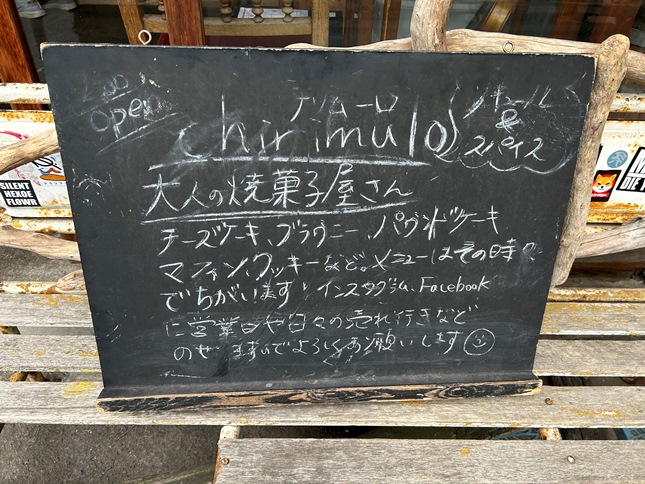 open
chirimulo
リキュール
&
スパイス
大人の焼菓子屋さん
チーズケーキ、ブラウニー、パウンドケーキ
マフィン、クッキーなど。メニューはその時々
でちがいます インスタグラム、Facebook
に営業日や日々の売れ行きなど
のせますのでよろしくお願いします
SILENT
HEXOE
FLOWR